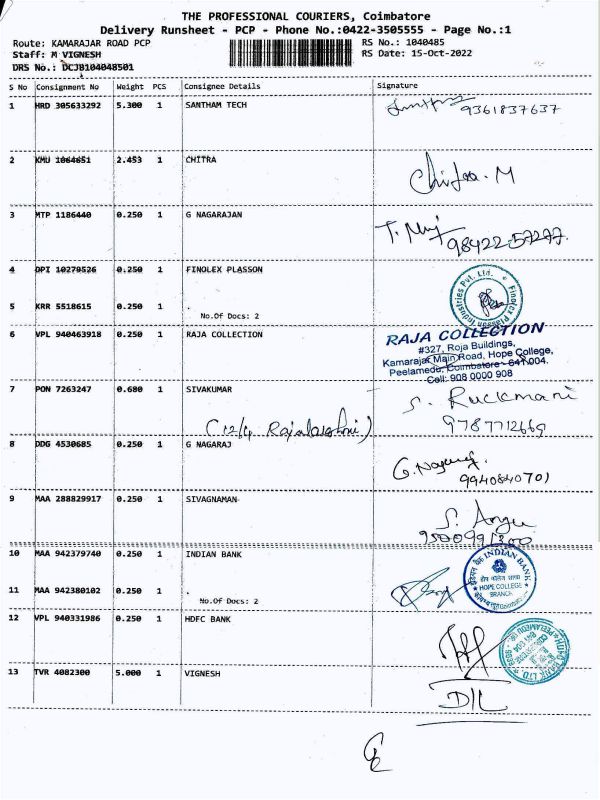 THE PROFESSIONAL COURIERS, Coimbatore
Delivery Runsheet - PCP - Phone No.:0422-3505555 - Page No.:1
Route: KAMARAJAR ROAD PCP RS No.: 1040485
Staff: M VIGNESH RS Date: 15-Oct-2022
DRS No.: DCJB104048501
S No Consignment No Weight PCS Consignee Details Signature
1 HRD 305633292 5.300 1 SANTHAM TECH 9361837637
2 KMU 1064651 2.453 1 CHITRA Chitra. M
3 MTP 1186440 0.250 1 G NAGARAJAN
98422-57277.
4 DPI 10279526 0.250 1 FINOLEX PLASSON
Finolex Plasson Industries Pvt. Ltd.
5 KRR 5518615 0.250 1 .
No.Of Docs: 2
6 VPL 940463918 0.250 1 RAJA COLLECTION RAJA COLLECTION
#327, Roja Buildings,
Kamarajar Main Road, Hope College,
Peelamedu, Coimbatore - 641 004.
Cell: 908 0000 908
7 PON 7263247 0.680 1 SIVAKUMAR S. Ruckmani
9787712669
8 DDG 4530685 0.250 1 G NAGARAJ
9940840701
9 MAA 288829917 0.250 1 SIVAGNAMAN
10 MAA 942379740 0.250 1 INDIAN BANK INDIAN BANK
HOPE COLLEGE
BRANCH
11 MAA 942380102 0.250 1 .
No.Of Docs: 2
12 VPL 940331986 0.250 1 HDFC BANK
13 TVR 4082300 5.000 1 VIGNESH D/L